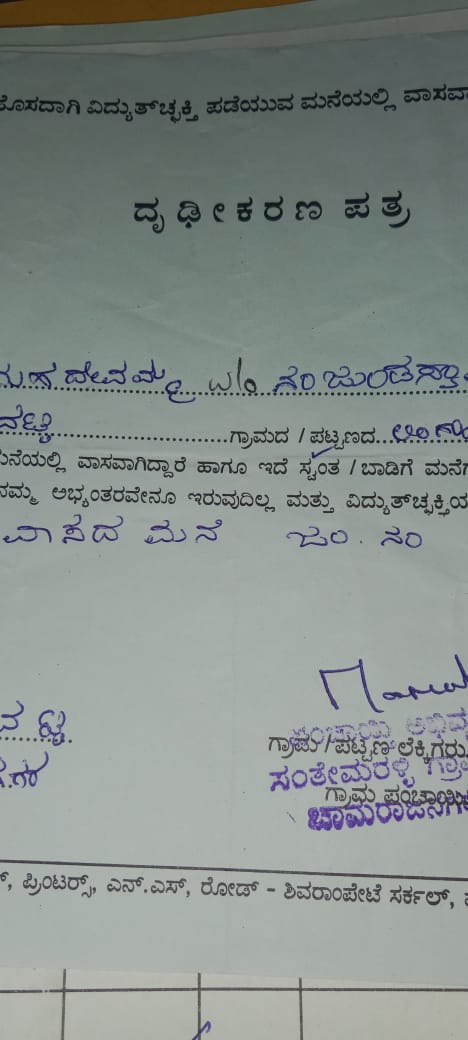 ಹೊಸದಾಗಿ ವಿದ್ಯುತ್‌ಚ್ಛಕ್ತಿ ಪಡೆಯುವ ಮನೆಯಲ್ಲಿ ವಾಸವಾ
ದೃಢೀಕರಣ ಪತ್ರ
ಮಹದೇವಮ್ಮ w/o ನಂಜುಂಡಸ್ವಾ
ಗ್ರಾಮದ / ಪಟ್ಟಣದ
ಮನೆಯಲ್ಲಿ ವಾಸವಾಗಿದ್ದಾರೆ ಹಾಗೂ ಇದೆ ಸ್ವಂತ / ಬಾಡಿಗೆ ಮನೆ
ನಮ್ಮ ಅಭ್ಯಂತರವೇನೂ ಇರುವುದಿಲ್ಲ ಮತ್ತು ವಿದ್ಯುತ್‌ಚ್ಛಕ್ತಿಯ
ವಾಸದ ಮನೆ ಜಂ. ನಂ
ಪಂಚಾಯಿತಿ ಅಭಿವೃ
ಗ್ರಾಮ / ಪಟ್ಟಣ ಲೆಕ್ಕಿಗರು
ಸಂತೇಮರಳ್ಳಿ ಗ್ರಾ
ಗ್ರಾಮ ಪಂಚಾಯಿ
ಚಾಮರಾಜನಗ
ಪ್ರಿಂಟರ್ಸ್, ಎನ್.ಎಸ್, ರೋಡ್ - ಶಿವರಾಂಪೇಟೆ ಸರ್ಕಲ್,